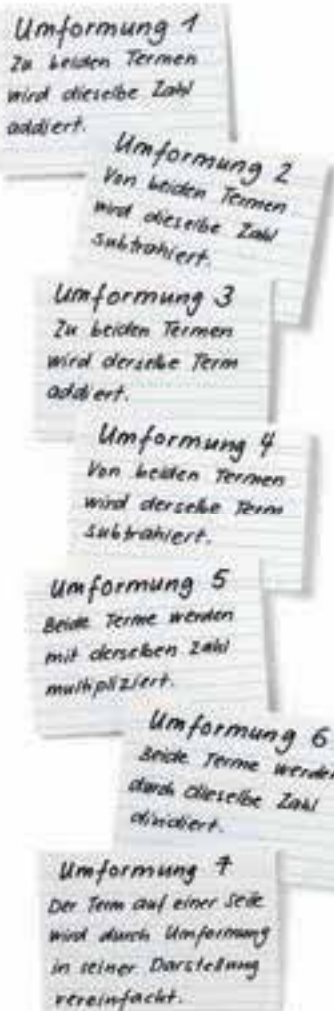 Umformung 1
Zu beiden Termen
wird dieselbe Zahl
addiert.
Umformung 2
Von beiden Termen
wird dieselbe Zahl
subtrahiert.
Umformung 3
Zu beiden Termen
wird derselbe Term
addiert.
Umformung 4
Von beiden Termen
wird derselbe Term
subtrahiert.
Umformung 5
Beide Terme werden
mit derselben Zahl
multipliziert.
Umformung 6
Beide Terme werden
durch dieselbe Zahl
dividiert.
Umformung 7
Der Term auf einer Seite
wird durch Umformung
in seiner Darstellung
vereinfacht.